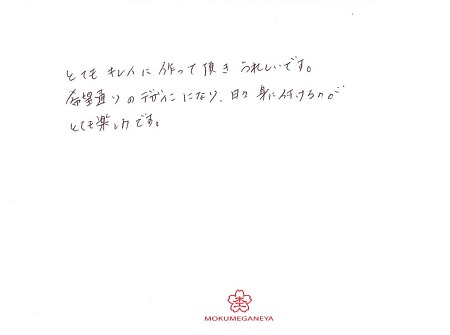 とてもキレイに作って頂きうれしいです。
希望通りのデザインになり、日々身に付けるのが
とても楽しみです。
MOKUMEGANEYA